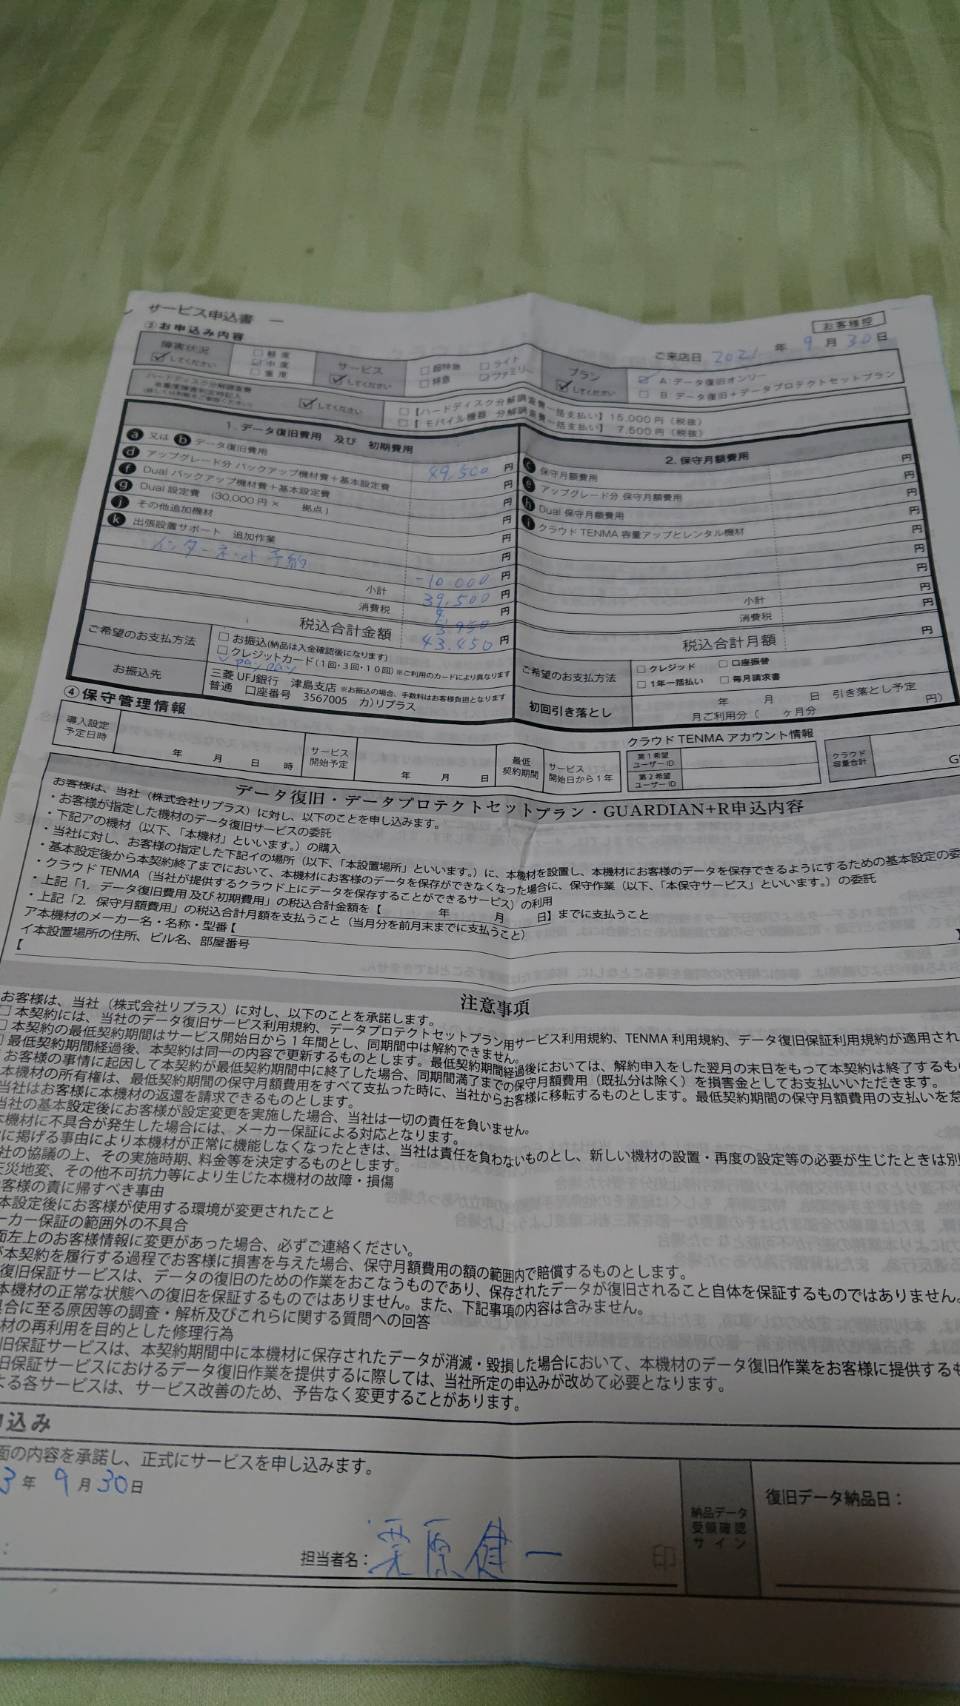 サービス申込書 ー
お客様控
③お申込み内容
ご来店日 2021 年 9 月 30 日
障害状況 してください
軽度
中度
重度
サービス してください
超特急
特急
ライト
ファミリー
プラン してください
A データ復旧オンリー
B データ復旧+データプロテクトセットプラン
ハードディスク分解調査費
してください
【ハードディスク分解調査費一括支払い】15,000円(税抜)
【モバイル機器 分解調査費一括支払い】7,500円(税抜)
1. データ復旧費用 及び 初期費用
a 又は b データ復旧費用 49,500 円
d アップグレード分 バックアップ機材費+基本設定費 円
f Dual バックアップ機材費+基本設定費 円
g Dual 設定費 (30,000円× 拠点) 円
j その他追加機材 円
k 出張設置サポート 追加作業 円
インターネット予約
-10,000 円
小計 39,500 円
消費税 3,950 円
税込合計金額 43,450 円
ご希望のお支払方法
□ お振込(納品は入金確認後になります)
□ クレジットカード(1回・3回・10回)※ご利用のカードにより異なります
PayPay
お振込先
三菱UFJ銀行 津島支店 ※お振込の場合、手数料はお客様負担となります
普通 口座番号 3567005 カ)リプラス
2. 保守月額費用
c 保守月額費用 円
e アップグレード分 保守月額費用 円
h Dual 保守月額費用 円
i クラウドTENMA 容量アップとレンタル機材 円
円
円
小計 円
消費税 円
税込合計月額 円
ご希望のお支払方法
□ クレジッド □ 口座振替
□ 1年一括払い □ 毎月請求書
初回引き落とし
年 月 日 引き落とし予定
月ご利用分( ヶ月分 円)
④保守管理情報
導入設定予定日時
年 月 日 時
サービス開始予定
年 月 日
最低契約期間
サービス開始日から1年
クラウドTENMAアカウント情報
第1希望ユーザーID
第2希望ユーザーID
クラウド容量合計
データ復旧・データプロテクトセットプラン・GUARDIAN+R申込内容
お客様は、当社(株式会社リプラス)に対し、以下のことを申し込みます。
・お客様が指定した機材のデータ復旧サービスの委託
・下記アの機材(以下、「本機材」といいます。)の購入
・当社に対し、お客様の指定した下記イの場所(以下、「本設置場所」といいます。)に、本機材を設置し、本機材にお客様のデータを保存できるようにするための基本設定の委
・基本設定後から本契約終了までにおいて、本機材にお客様のデータを保存ができなくなった場合に、保守作業(以下、「本保守サービス」といいます。)の委託
・クラウドTENMA(当社が提供するクラウド上にデータを保存することができるサービス)の利用
・上記「1. データ復旧費用 及び 初期費用」の税込合計金額を【 年 月 日】までに支払うこと
・上記「2. 保守月額費用」の税込合計月額を支払うこと(当月分を前月末までに支払うこと)
ア本機材のメーカー名・名称・型番【
イ本設置場所の住所、ビル名、部屋番号
【
注意事項
お客様は、当社(株式会社リプラス)に対し、以下のことを承諾します。
□ 本契約には、当社のデータ復旧サービス利用規約、データプロテクトセットプラン用サービス利用規約、TENMA利用規約、データ復旧保証利用規約が適用され
□ 本契約の最低契約期間はサービス開始日から1年間とし、同期間中は解約できません。
最低契約期間経過後、本契約は同一の内容で更新するものとします。最低契約期間経過後においては、解約申入をした翌月の末日をもって本契約は終了するもの
お客様の事情に起因して本契約が最低契約期間中に終了した場合、同期間満了までの保守月額費用(既払分は除く)を損害金としてお支払いいただきます。
本機材の所有権は、最低契約期間の保守月額費用をすべて支払った時に、当社からお客様に移転するものとします。最低契約期間の保守月額費用の支払いを怠
当社はお客様に本機材の返還を請求できるものとします。
当社の基本設定後にお客様が設定変更を実施した場合、当社は一切の責任を負いません。
本機材に不具合が発生した場合には、メーカー保証による対応となります。
に掲げる事由により本機材が正常に機能しなくなったときは、当社は責任を負わないものとし、新しい機材の設置・再度の設定等の必要が生じたときは別
社の協議の上、その実施時期、料金等を決定するものとします。
天災地変、その他不可抗力等により生じた本機材の故障・損傷
客様の責に帰すべき事由
本設定後にお客様が使用する環境が変更されたこと
ーカー保証の範囲外の不具合
面左上のお客様情報に変更があった場合、必ずご連絡ください。
が本契約を履行する過程でお客様に損害を与えた場合、保守月額費用の額の範囲内で賠償するものとします。
復旧保証サービスは、データの復旧のための作業をおこなうものであり、保存されたデータが復旧されること自体を保証するものではありません。
本機材の正常な状態への復旧を保証するものではありません。また、下記事項の内容は含みません。
具合に至る原因等の調査・解析及びこれらに関する質問への回答
材の再利用を目的とした修理行為
旧保証サービスは、本契約期間中に本機材に保存されたデータが消滅・毀損した場合において、本機材のデータ復旧作業をお客様に提供するも
旧保証サービスにおけるデータ復旧作業を提供するに際しては、当社所定の申込みが改めて必要となります。
よる各サービスは、サービス改善のため、予告なく変更することがあります。
申込み
面の内容を承諾し、正式にサービスを申し込みます。
3年 9月 30日
担当者名: 栗原健一 印
納品データ受領確認サイン
復旧データ納品日: